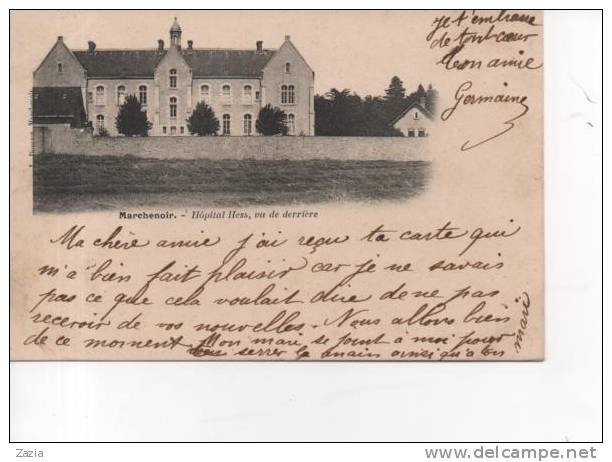 Je t'embrasse
de tout cœur
Ton amie
Germaine
Marchenoir. - Hôpital Hess, vu de derrière
Ma chère amie j'ai reçu ta carte qui
m'a bien fait plaisir car je ne savais
pas ce que cela voulait dire de ne pas
recevoir de vos nouvelles. Nous allons bien
de ce moment Mon mari se joint à moi pour
serrer la main ainsi qu'a ton
mari
Zazia
www.delcampe.net